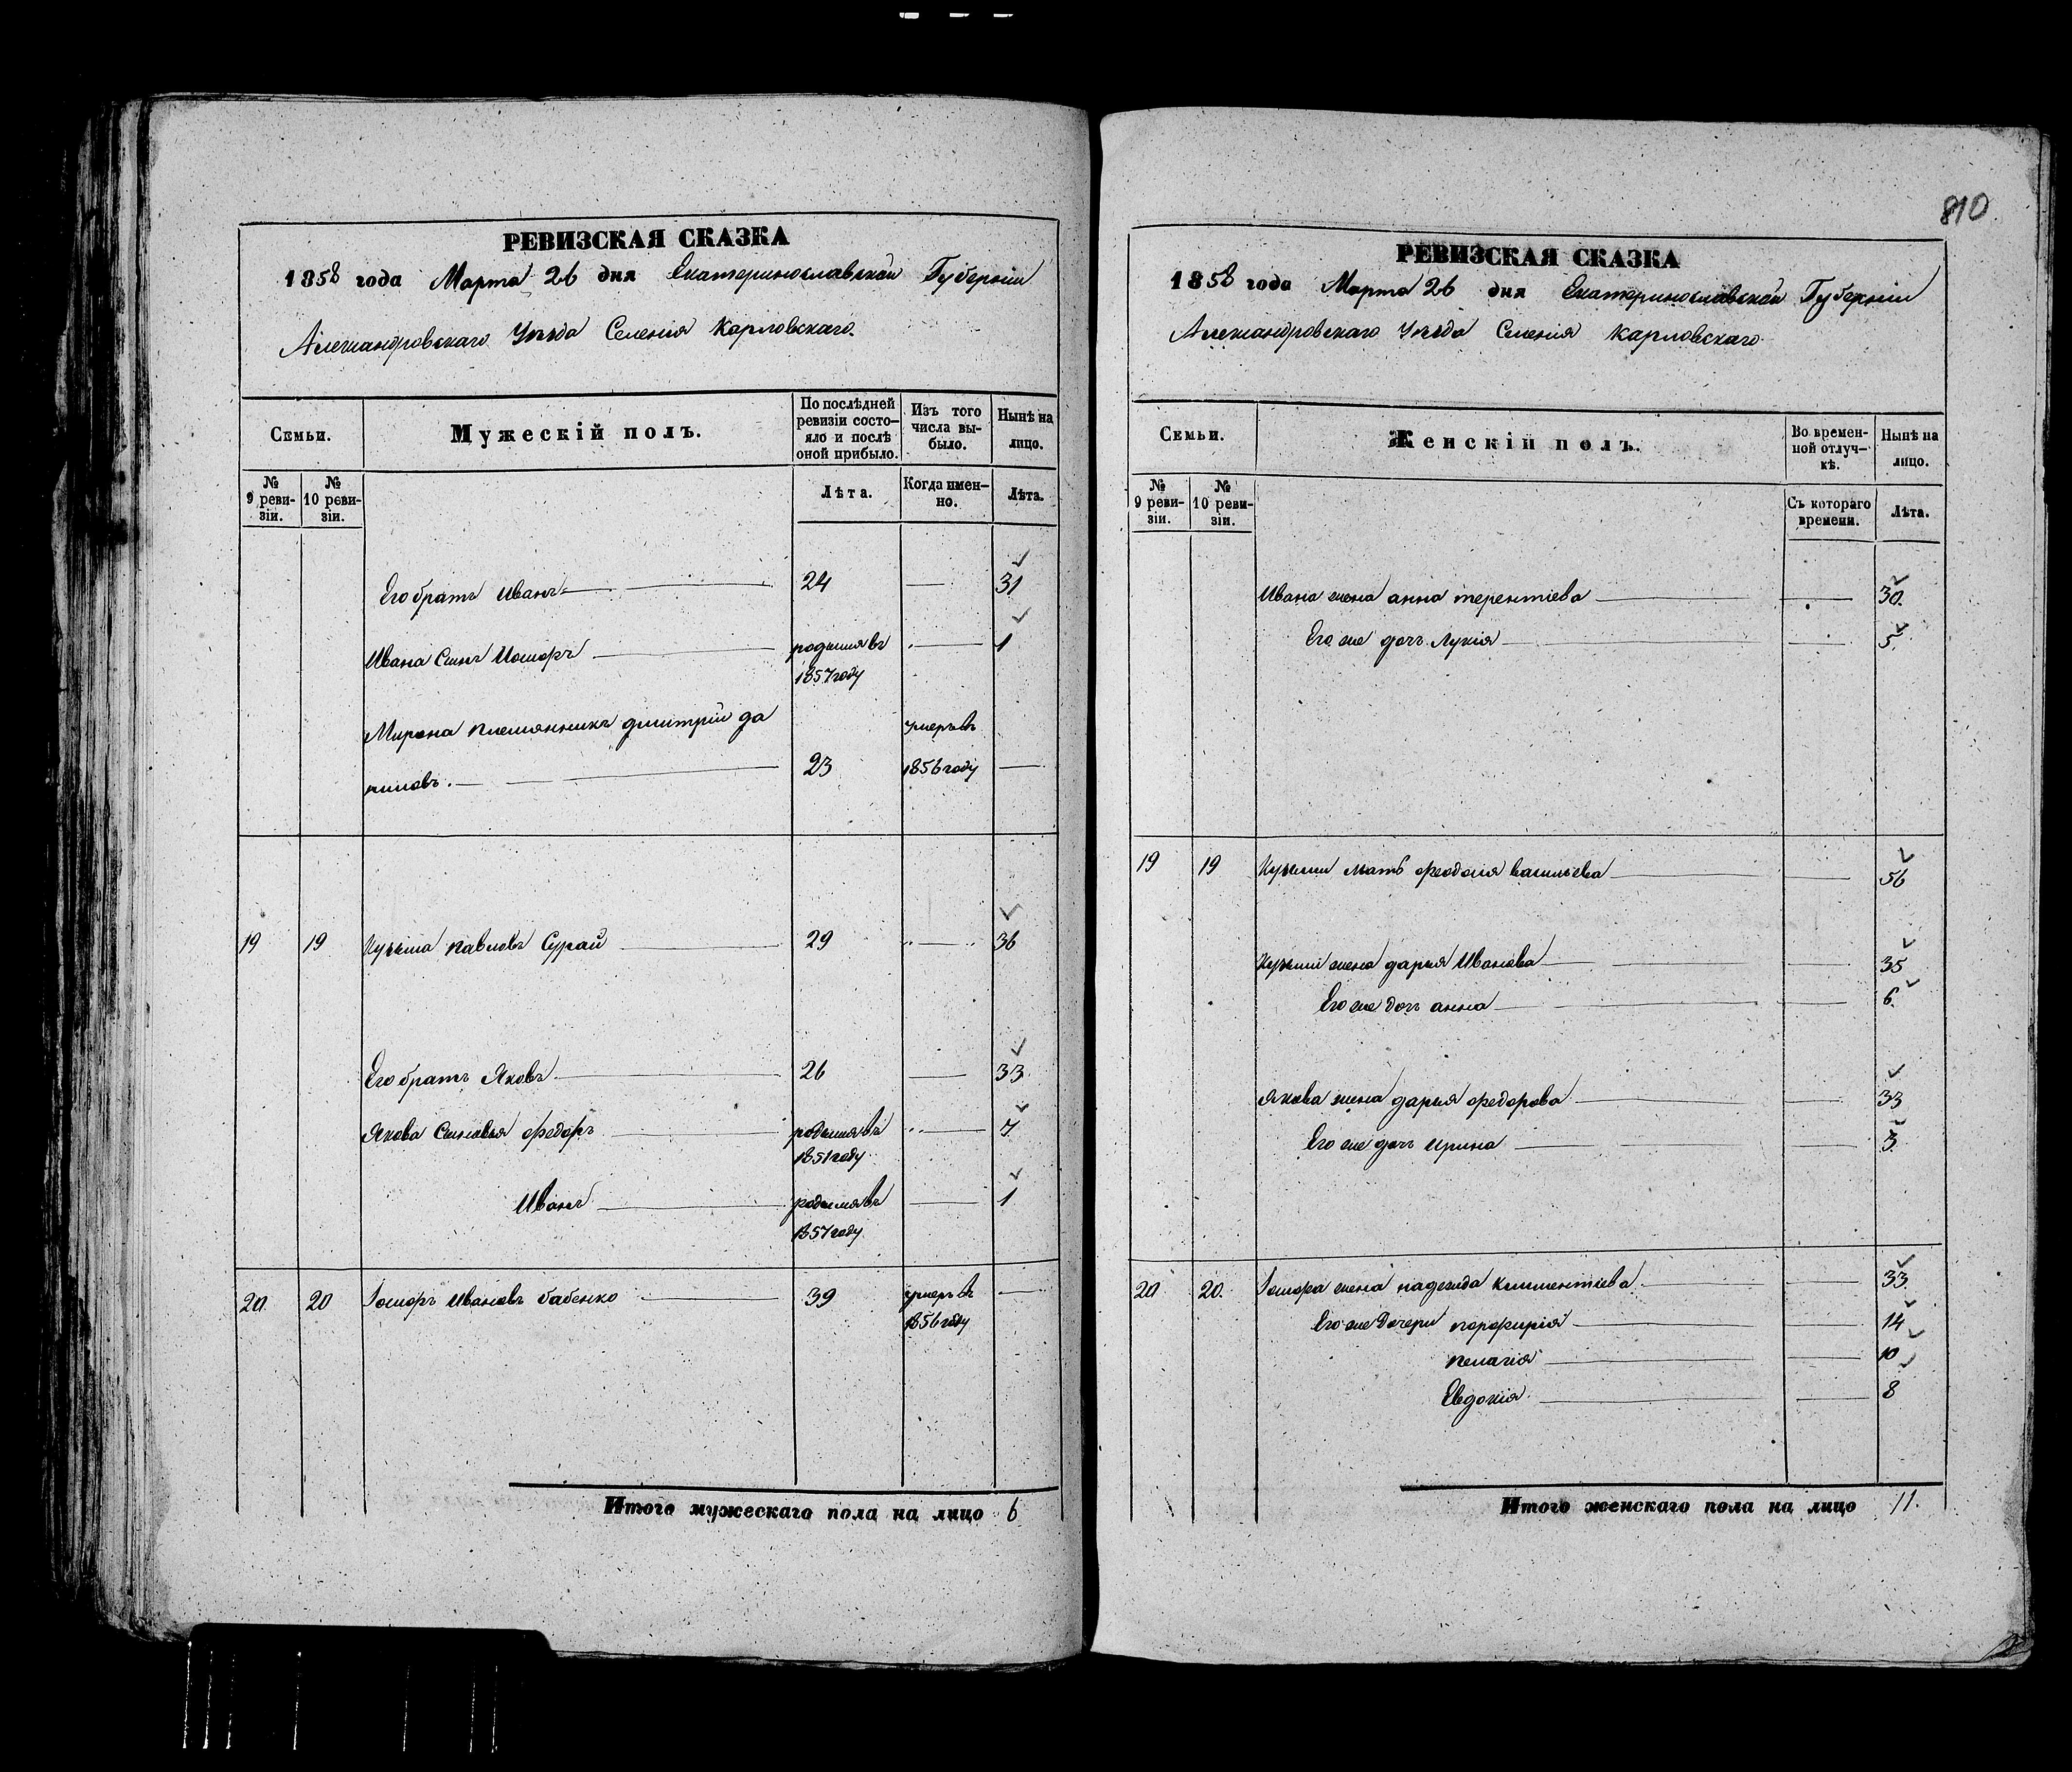 810
РЕВИЗСКАЯ СКАЗКА
1858 года Марта 26 дня Екатеринославской Губерніи
Александровскаго Уѣзда Селенія Карловскаго.
Семьи.
Мужескій полъ.
По послѣдней ревизіи состояло и послѣ оной прибыло.
Изъ того числа выбыло.
Нынѣ на лицо.
№ 9 ревизіи.
№ 10 ревизіи.
Лѣта.
Когда именно.
Лѣта.
Его братъ Иванъ 24 — 31
Ивана Сынъ родился въ 1857 году — 1
Мирона племянникъ дмитрій да
ниловъ. 23 умеръ въ 1856 году —
19 19 Кузьма павловъ Сурай 29 — 36
Его братъ Яковъ 26 — 33
Якова Сыновья федоръ родился въ 1851 году — 7
Иванъ родился въ 1857 году — 1
20 20 Иванъ бабенко 39 умеръ въ 1856 году —
Итого мужескаго пола на лицо 6
РЕВИЗСКАЯ СКАЗКА
1858 года Марта 26 дня Екатеринославской Губерніи
Александровскаго Уѣзда Селенія Карловскаго
Семьи.
Женскій полъ.
Во временной отлучкѣ.
Нынѣ на лицо.
№ 9 ревизіи.
№ 10 ревизіи.
Съ котораго времени.
Лѣта.
Ивана жена анна терентіева — 30
Его же дочь Лукія — 5
19 19 Кузьмы мать феодосія васильева — 56
Кузьмы жена дарья Иванова — 35
Его же дочь анна — 6
Якова жена дарья федорова — 33
Его же дочь ирина — 3
20 20 жена надежда климентіева — 33
Его же дочери порфирія — 14
пелагія — 10
Евдокія — 8
Итого женскаго пола на лицо 11.